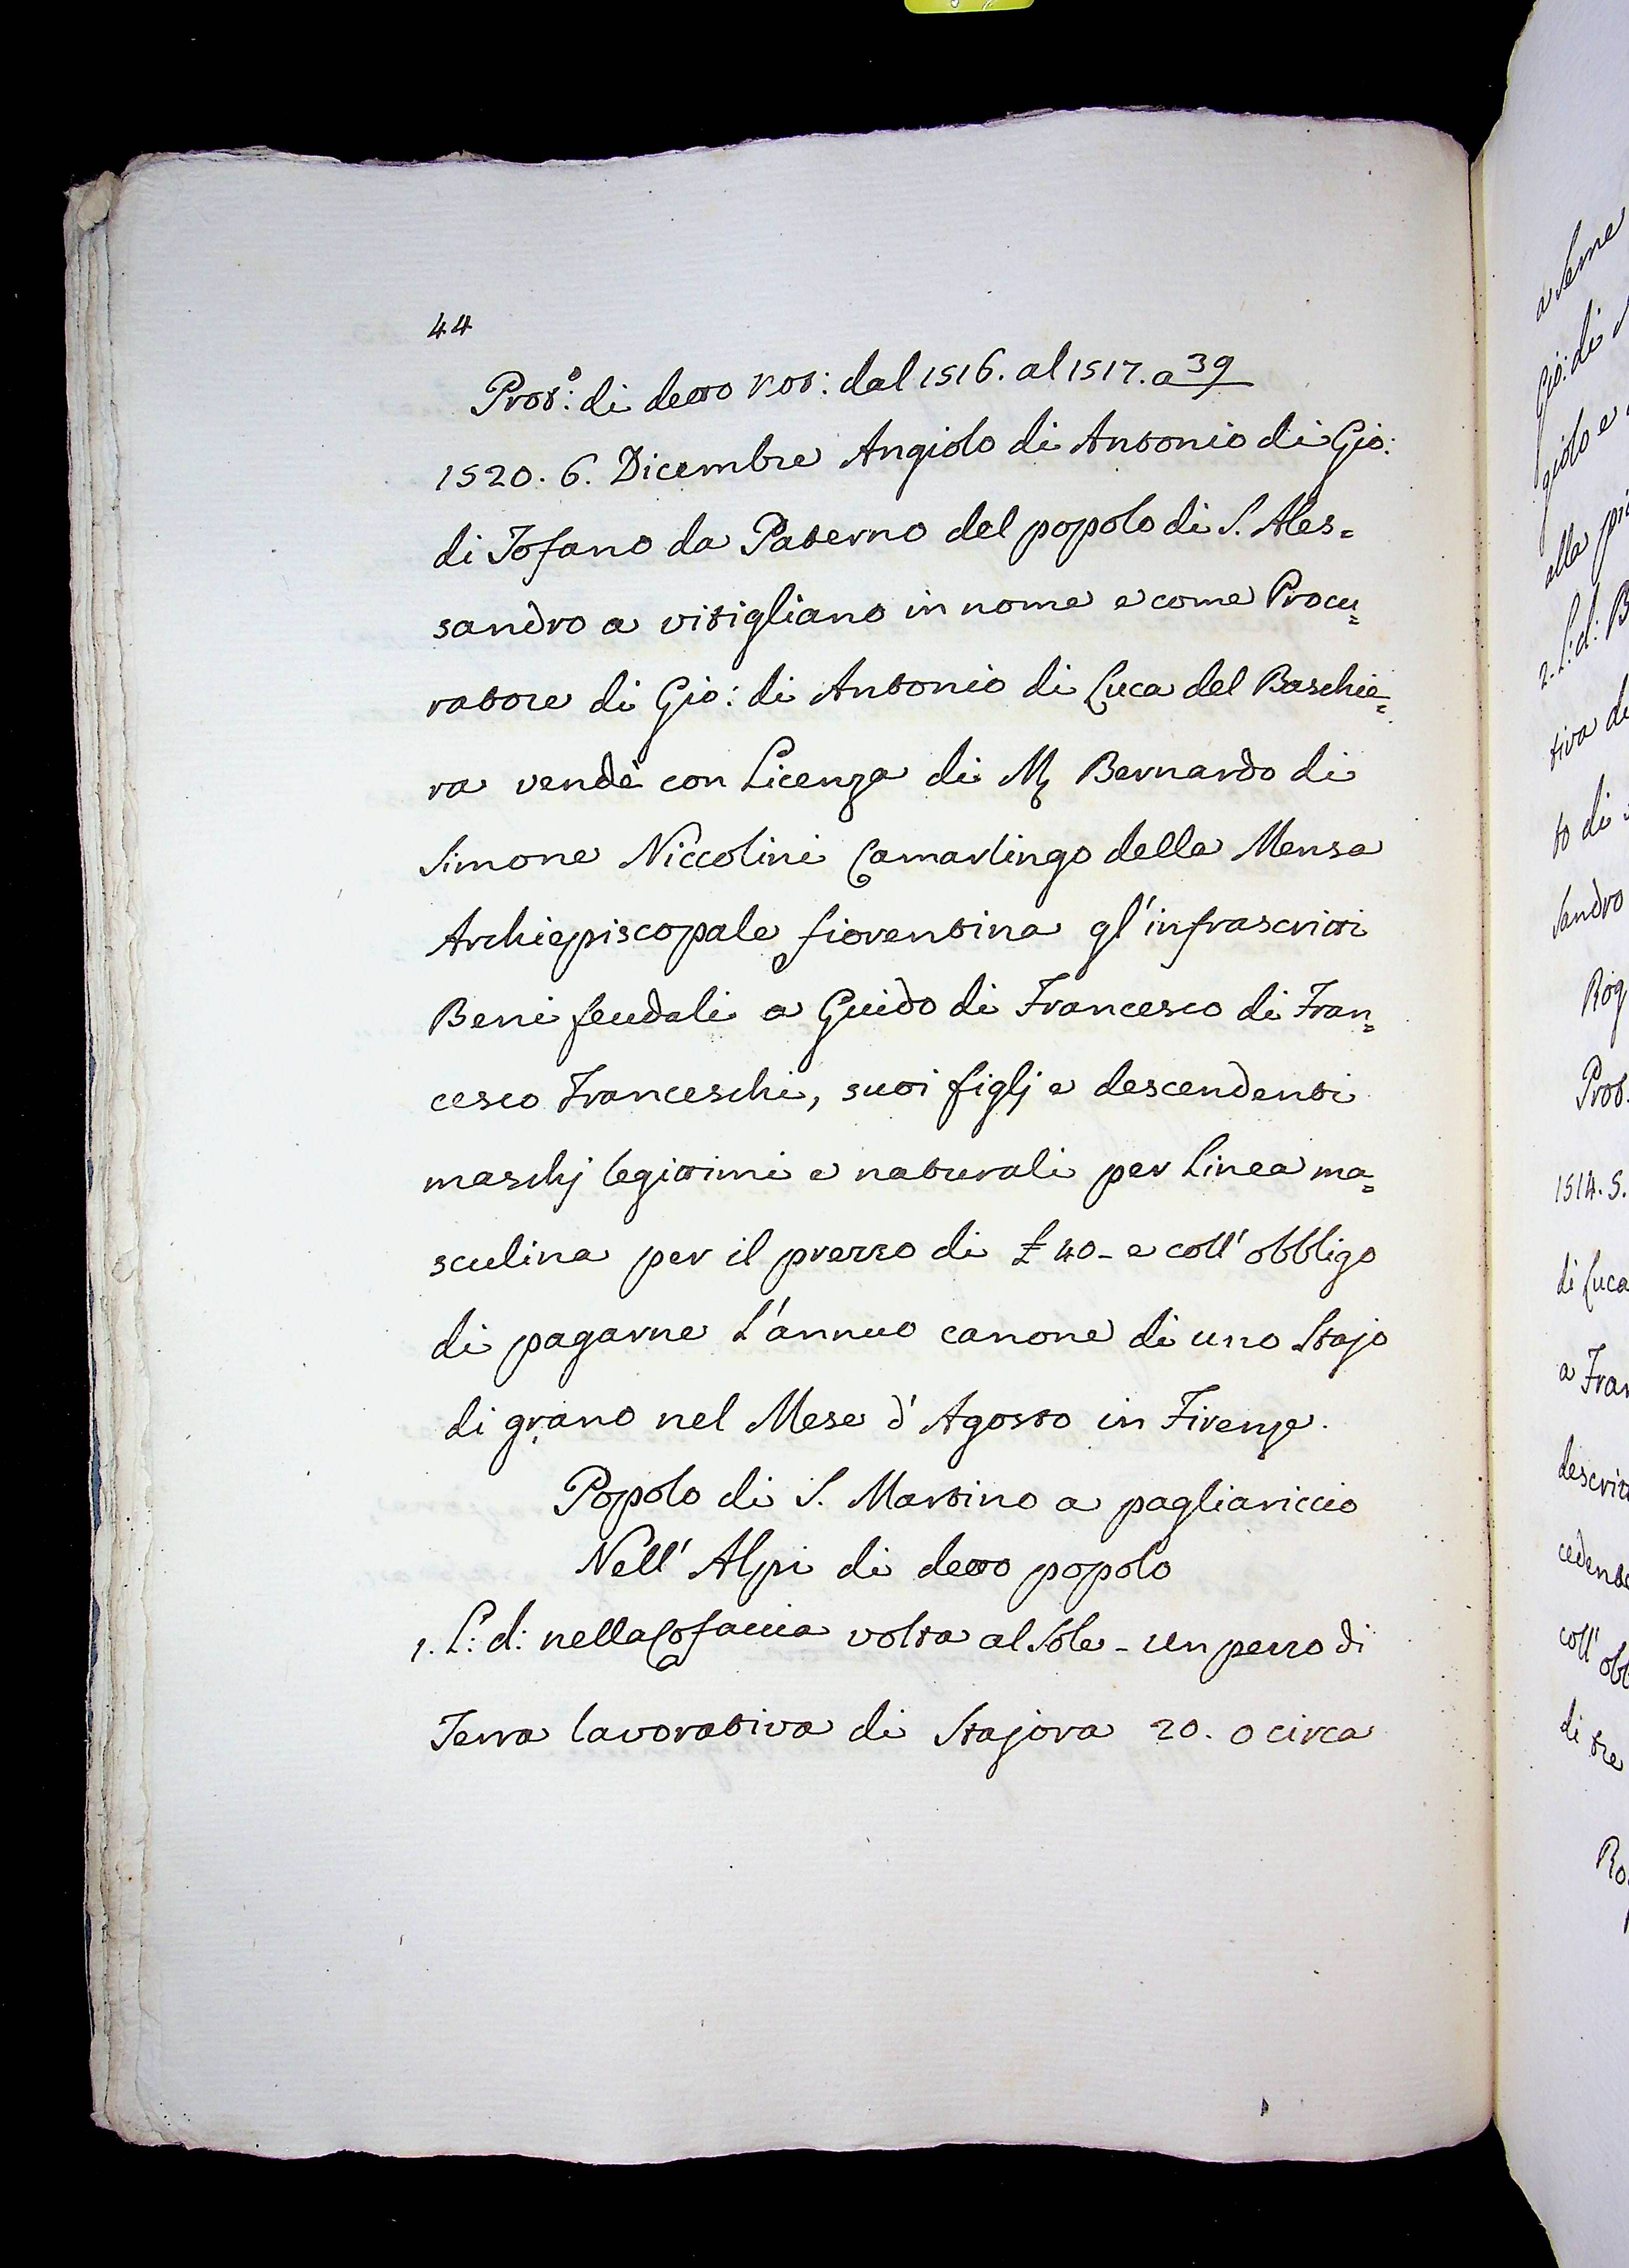 44
Prot:º di detto Not: dal 1516. al 1517. a 39
1520. 6. Dicembre Angiolo di Antonio di Gio:
di Tofano da Paterno del popolo di S. Ales=
sandro a vitigliano in nome e come Procu=
ratore di Gio: di Antonio di Luca del Baschie=
ra vendè con Licenza di M Bernardo di
Simone Niccolini Camarlingo della Mensa
Archiepiscopale fiorentina gl'infrascritti
Beni feudali a Guido di Francesco di Fran=
cesco Franceschi, suoi figlj e descendenti
maschj legittimi e naturali per Linea ma=
sculina per il prezzo di £ 40 - e coll'obbligo
di pagarne l'annuo canone di uno Stajo
di grano nel Mese d'Agosto in Firenze.
Popolo di S. Martino a pagliariccio
Nell'Alpi di detto popolo
1. L: d: nella Cofaccia volta al Sole - Un pezzo di
Terra lavorativa di Stajora 20. o circa
a Seme
Gio: di
giolo e
alla
2. L: d: B
tiva di
to di
sandro
Rog
Prot.
1514. 5.
di Luca
a Fran
descritt
cedente
coll'obb
di tre
Ro